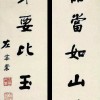 品當如山
要比玉
左宗棠